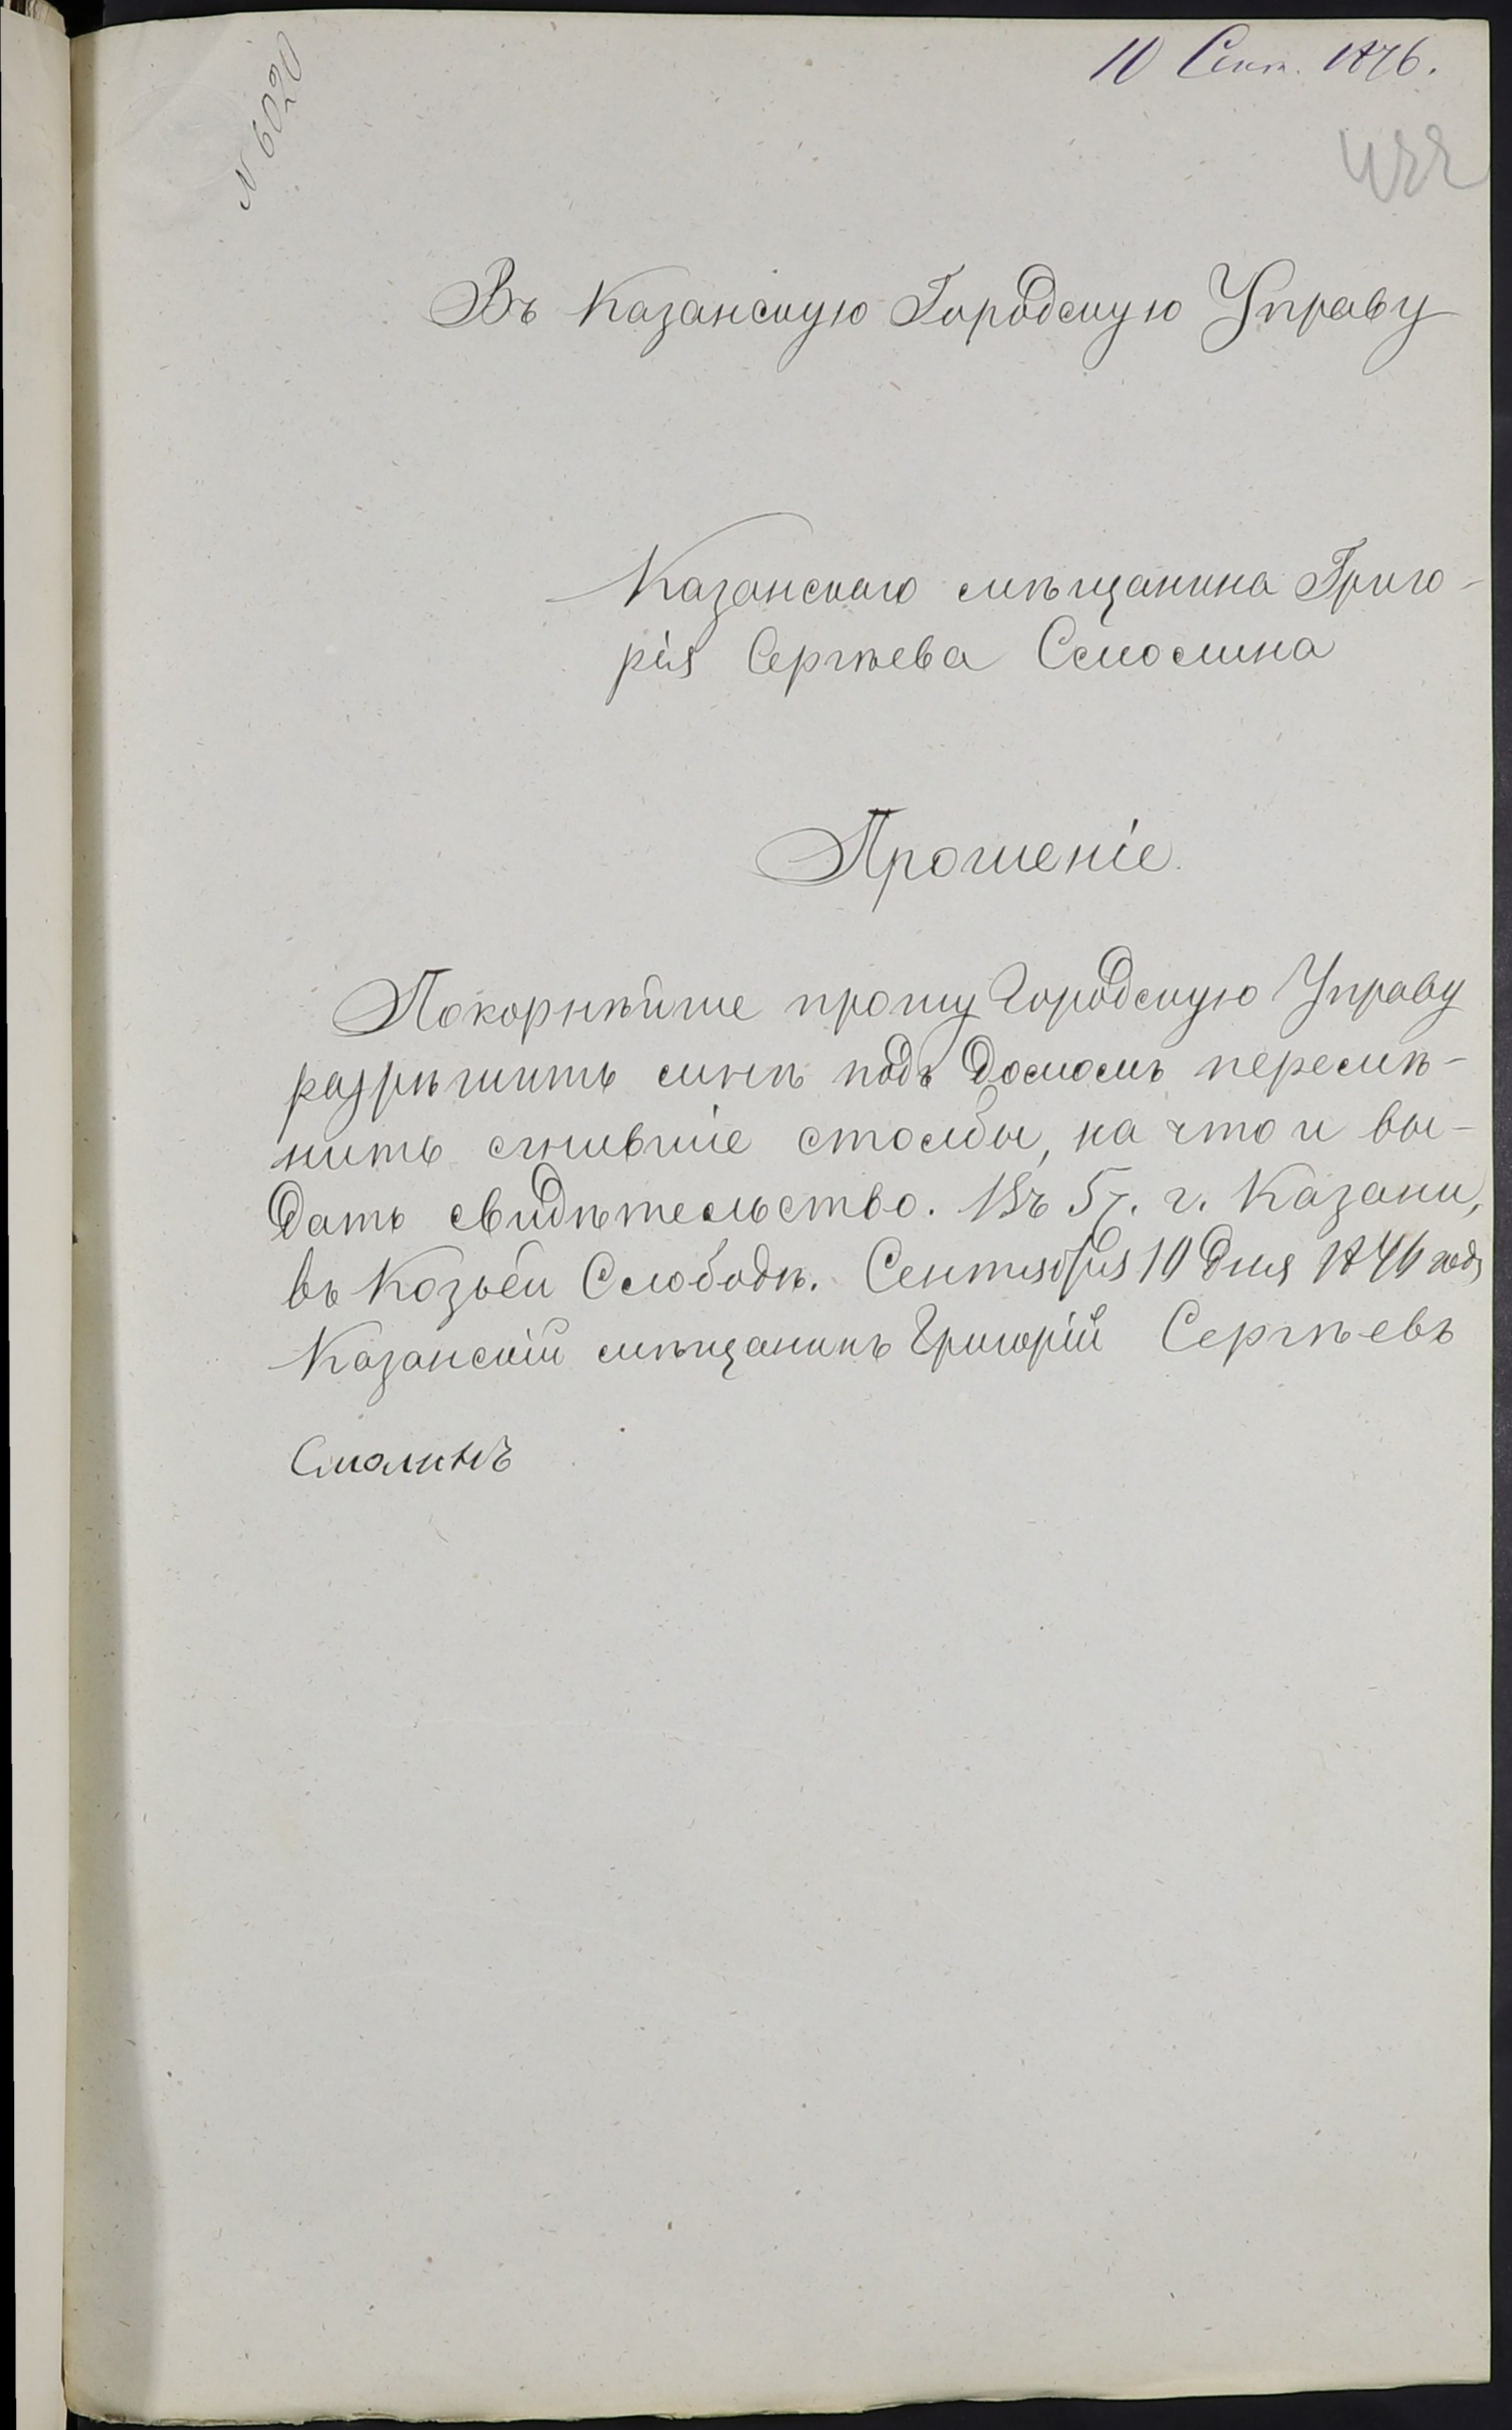 10 Сент. 1876.
N 6020
Въ Казанскую Городскую Управу
Казанскаго мѣщанина Григо-
рія Сергѣева Смолина
Прошеніе.
Покорнѣйше прошу Городскую Управу
разрѣшить мнѣ подъ домомъ перемѣ-
нить сгнившіе столбы, на что и вы-
дать свидѣтельство. Въ 5 ч. г. Казани,
въ Козьей Слободѣ. Сентября 10 дня 1876 года
Казанскій мѣщанинъ Григорій Сергѣевъ
Смолинъ